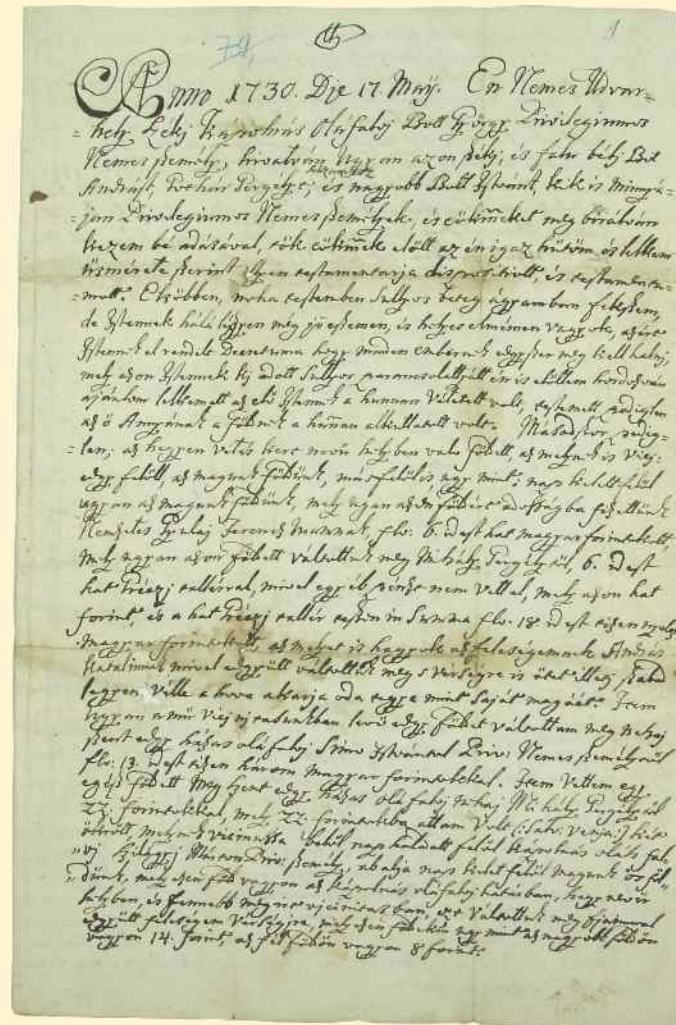 79.
1
Anno 1730. Die 17. Maÿ. En Nemes Udvar=
=hely Székj Kápolnás Oláhfaluj Bott György Privilegiumos
Nemes személy, hivatván ugyan azon székj, és falu bélj Bot
Andrást, Gergelyt, és nagyobb Bott Istvánt, kik is minnyá=
=jan Privilegiumos Nemes személyek, és eökimeket meg birálván
kezem bé adásával, eök eökimek elött az én igaz hütöm és lelkem
üsmérete szerint illyen testamentaria dispositiott, és testamentu=
=mott. Elsöbben, noha testemben sullyos beteg ágyamban fekszem,
de Istennek hálá légyen még jó eszemen, és hellyes elmémen vagyok, azért
Istennek el rendelt Decretuma hogy minden embernek egyszer meg kell halnj,
mely azon Istennek ki adott sullyos parancsolattyát én is elöttem hordozván
ajánlom lelkemett az élö Istennek a honnan vétetett volt, testemett pediglen
az ö Annyának a Földnek a honnan alkottatott volt. Másodszor pedig=
=len, az hegyen vetés nevü helyben valo földett, az melynek is vicj:
egy felöll, az magunk földünk, más felöl is ugy mint, nap kelett felöl
ugyan az magunk földünk, mely ugyan azon földért adosságba
Nemzetes Gyulaj Ferencz Uramnak, flo. 6. id est hat magyar forintokatt,
mely ugyan azon földett váltottuk meg Mihály Gergelytöl, 6. id est
hat talléral, mivel egyéb pénze nem vett el, mely azon hat
forint, és a hat tallér teszen in Summa flo. 18 id est tizen nyolcz
magyar forintokatt, az melyet is hagyok az feleségemnek András
Katalinnak mivel együtt váltottuk meg s örökségre is ötet illetj szabad
legyen véle a hova akarja oda tegye mint saját magáét. Item
ugyan a mü viej uj tasunkban levö egy földet váltottam meg nehaj
szent egy házas oláfaluj Simo Istvántol Priv: Nemes személytöl
flo. 13. id est tizen három magyar forintokkal. Item vettem egy
egész földett meg szent egy házas oláfaluj nehaj Mihály Gergelytöl
22. forintokkal, mely 22. forintokba attam volt (: Salv. venia:) két
ökröt, melynek vicinussa belöl nap haladatt felöl kápolnás oláh fal=
=uj Márton Priv. személy, abalja nap kelet felöl magunk ös föl=
=dünk, mely ezen föld vagyon az kápolnás oláfaluj határban, nevü
helyben, és fennebb megirt vicinitasban, ezt váltottuk meg Ujjannal
együtt feleségem örökségire, mely ezen földekön ugy mint az nagyobb földön
vagyon 14. forint, az fél földön vagyon 8 forint.